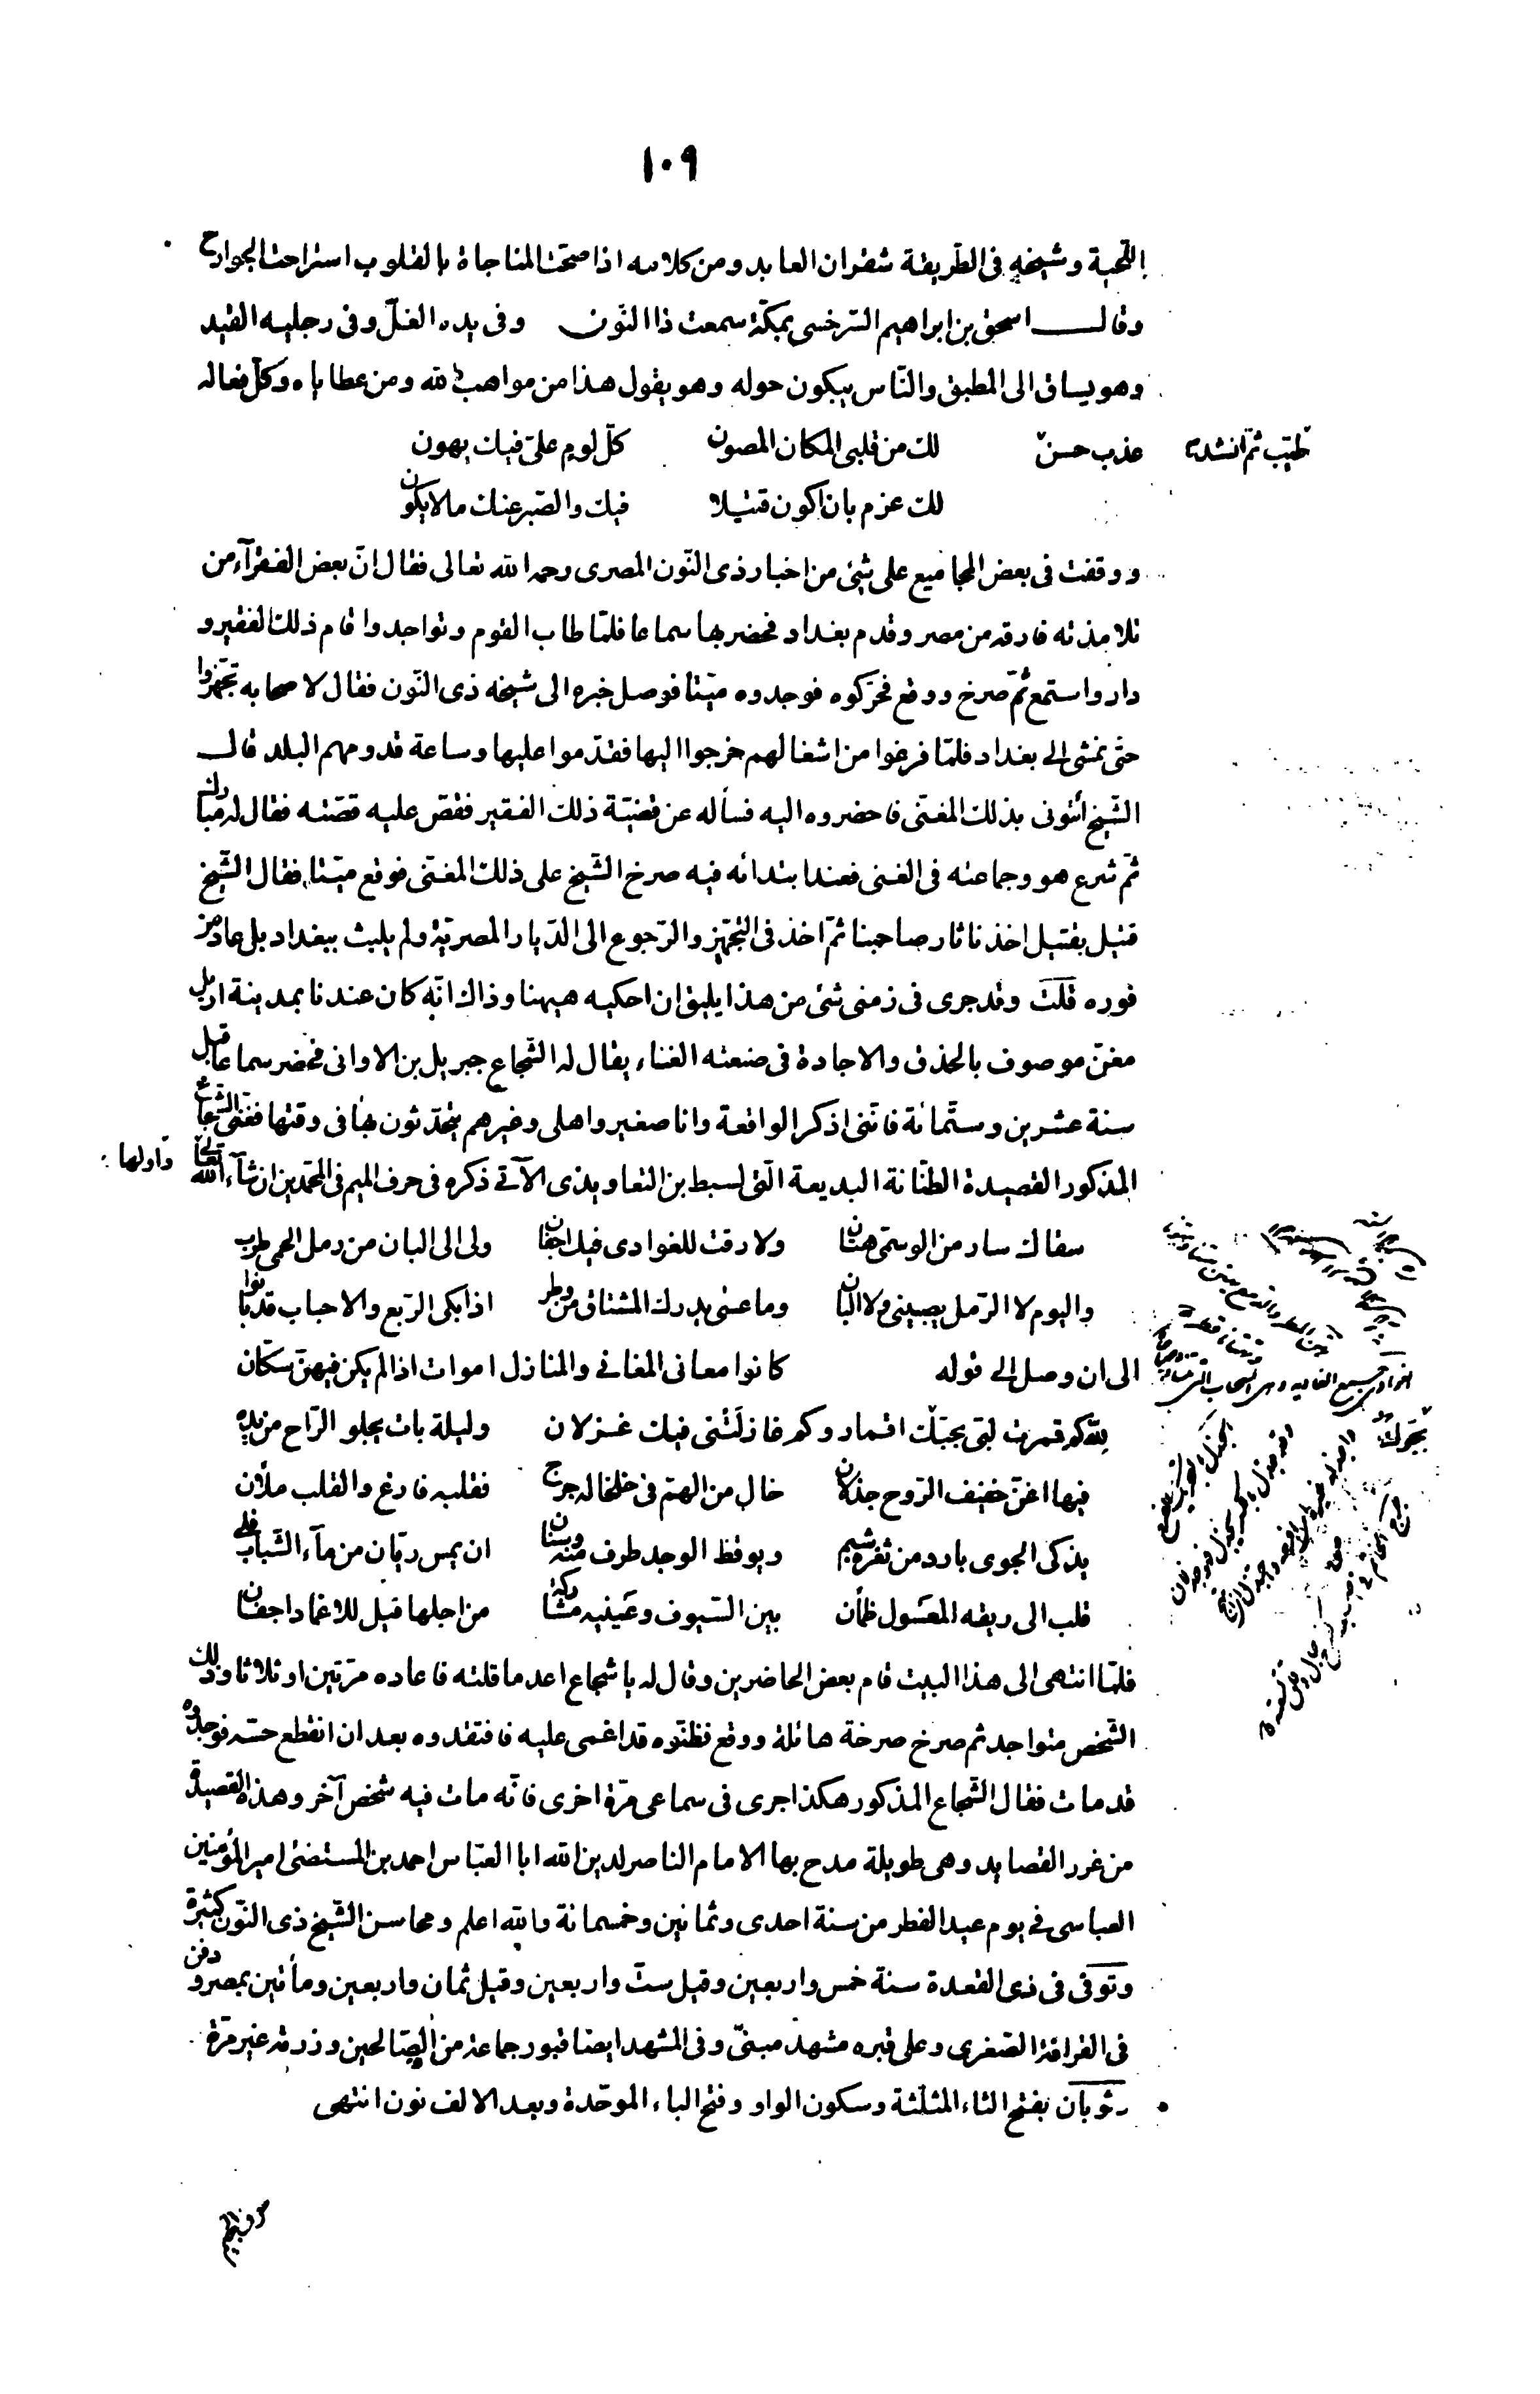 ١٠٩
اللّحية وشيخه فى الطّريقة شقران العابد ومن كلامه اذا صحّت المناجاة بالقلوب استراحت الجوارح
وقال اسحق بن ابراهيم السّرخسى بمكّة سمعت ذا النّون وفى يده الغلّ وفى رجليه القيد
وهو يساق الى المطبق والنّاس يبكون حوله وهو يقول هذا من مواهب الله ومن عطاياه وكلّ فعاله
عذب حسن طيّب ثمّ انشد لك من قلبى المكان المصون كلّ لوم علىّ فيك يهون
لك عزم بان اكون قتيلا فيك والصّبر عنك مالا يكون
ووقفت فى بعض المجاميع على شئ من اخبار ذى النّون المصرى رحمه الله تعالى فقال انّ بعض الفقرآء من
تلامذته فارقه من مصر وقدم بغداد فحضر بها سماعا فلمّا طاب القوم وتواجدوا قام ذلك الفقير و
دار واستمع ثمّ صرخ ووقع فحرّكوه فوجدوه ميّتا فوصل خبره الى شيخه ذى النّون فقال لاصحابه تجهّزوا
حتّى نمشى الى بغداد فلمّا فرغوا من اشغالهم خرجوا اليها فقدّموا عليها وساعة قدومهم البلد قال
الشّيخ أئتونى بذلك المغنّى فاحضروه اليه فسأله عن قضيّة ذلك الفقير فقصّ عليه قصّته فقال له مبارك
ثمّ شرع هو وجماعته فى الغنى فعند ابتدائه فيه صرخ الشّيخ على ذلك المغنّى فوقع ميّتا فقال الشّيخ
قتيل بقتيل اخذنا ثار صاحبنا ثمّ اخذ فى التّجهّز والرّجوع الى الدّيار المصريّة ولم يلبث ببغداد بل عاد من
فوره قلت وقد جرى فى زمنى شئ من هذا يليق ان احكيه هيهنا وذاك انّه كان عندنا بمدينة اربل
مغنّ موصوف بالحذق والاجادة فى صنعته الغناء يقال له الشّجاع جبريل بن الاوانى فحضر سماعا قبل
سنة عشرين وستّمائة فانّنى اذكر الواقعة وانا صغير واهلى وغيرهم يتحدّثون بها فى وقتها فغنّى الشّجاع
المذكور القصيدة الطّنّانة البديعة الّتى لسبط بن التعاويذى الآتى ذكره فى حرف الميم فى المحمّدين ان شآء الله تعالى واولها
سقاك سار من الوسمّى هتّان ولا رقت للغوادى فيك اجفان ولى الى البان من رمل الحمى طرب
واليوم لا الرّمل يصبينى ولا البان وما عسى يدرك المشتاق من وطر اذا بكى الرّبع والاحباب قد بانوا
الى ان وصل الى قوله كانوا معانى المغانى والمنازل اموات اذا لم يكن فيهنّ سكّان
لله كم قمرت لبّى بجنّك اقمار وكم غازلتنى فيك غزلان وليلة بات يجلو الرّاح من يده
فيها اغنّ خفيف الرّوح جذلان خال من الهمّ فى خلخاله حرج فقلبه فارغ والقلب ملأن
يذكى الجوى بارد من ثغره شبم ويوقظ الوجد طرف منه وسنان ان يمس ريّان من مآء الشّباب فلى
قلب الى ريقه المعسول ظمأن بين السّيوف وعينيه مشاركة من اجلها قيل للاغماد اجفان
فلمّا انتهى الى هذا البيت قام بعض الحاضرين وقال له يا شجاع اعد ما قلته فاعاده مرّتين او ثلاثا وذلك
الشّخص متواجد ثم صرخ صرخة هائلة ووقع فظنّوه قد اغمى عليه فافتقدوه بعد ان انقطع حسّه فوجدوه
قد مات فقال الشّجاع المذكور هكذا جرى فى سماعى مرّة اخرى فانّه مات فيه شخص آخر وهذه القصيدة
من غرر القصايد وهى طويلة مدح بها الامام الناصر لدين الله ابا العبّاس احمد بن المستضئ امير المؤمنين
العباسى فى يوم عيد الفطر من سنة احدى وثمانين وخمسمائة والله اعلم ومحاسن الشّيخ ذى النّون كثيرة
وتوفّى فى ذى القعدة سنة خمس واربعين وقيل ستّ واربعين وقيل ثمان واربعين ومأتين بمصر ودفن
فى القرافة الصّغرى وعلى قبره مشهد مبنىّ وفى المشهد ايضا قبور جماعة من الصّالحين وزرته غير مرّة
وثوبان بفتح الثاء المثلّثة وسكون الواو وفتح الباء الموحّدة وبعد الالف نون انتهى